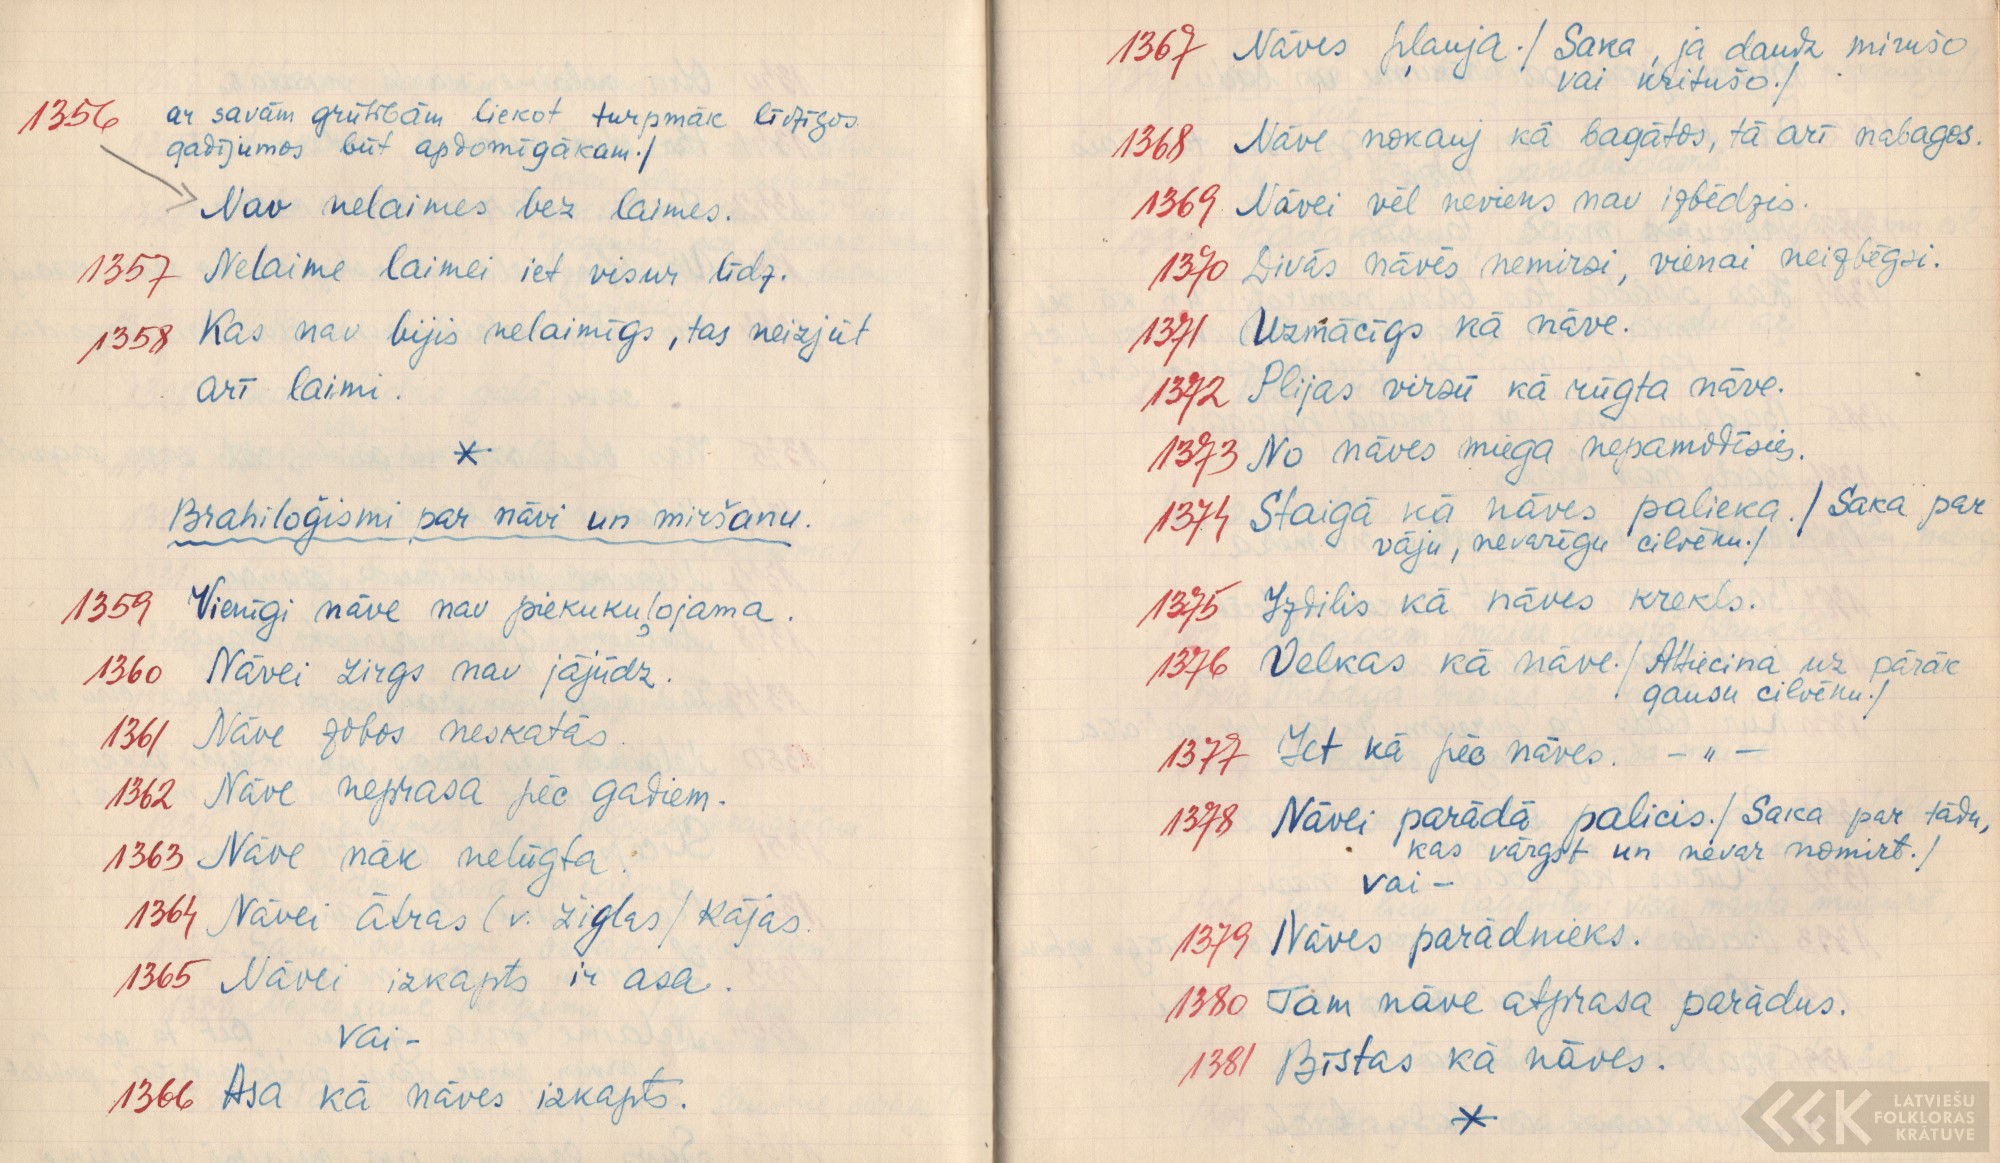 1356 ar savām grūtībām liekot turpmāk līdzīgos
gadījumos būt apdomīgākam./
Nav nelaimes bez laimes.
1357 Nelaime laimei iet visur līdz.
1358 Kas nav bijis nelaimīgs, tas neizjūt
arī laimi.
*
Brahiloģismi par nāvi un miršanu.
1359 Vienīgi nāve nav piekukuļojama.
1360 Nāvei zirgs nav jājūdz.
1361 Nāve zobos neskatās
1362 Nāve neprasa pēc gadiem.
1363 Nāve nāk nelūgta.
1364 Nāvei ātras (v. žiglas/ kājas.
1365 Nāvei izkapts ir asa.
vai-
1366 Asa kā nāves izkapts.
1367 Nāves pļauja./ Saka, ja daudz mirušo
vai kritušo./
1368 Nāve nokauj kā bagātos, tā arī nabagos.
1369 Nāvei vēl neviens nav izbēdzis.
1370 Divās nāvēs nemirsi, vienai neizbēgsi.
1371 Uzmācīgs kā nāve.
1372 Plijas virsū kā rūgta nāve.
1373 No nāves miega nepamodīsies.
1374 Staigā kā nāves palieka./ Saka par
vāju, nevarīgu cilvēku./
1375 Izdilis kā nāves krekls.
1376 Velkas kā nāve./ Attiecina uz pārāk
gausu cilvēku./
1377 Iet kā pēc nāves. — " —
1378 Nāvei parādā palicis./ Saka par tādu,
kas vārgst un nevar nomirt./
vai-
1379 Nāves parādnieks.
1380 Tam nāve atprasa parādus.
1381 Bīstas kā nāves.
*
LATVIEŠU
FOLKLORAS
KRĀTUVE